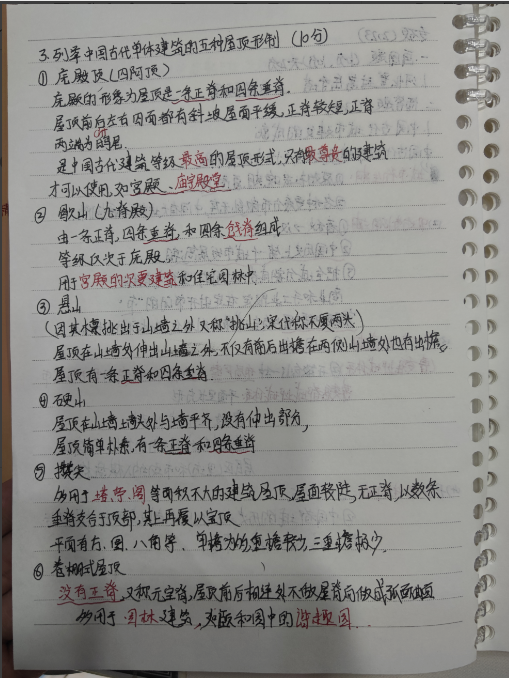 3.列举中国古代单体建筑的五种屋顶形制 (10分)
① 庑殿顶(四阿顶)
庑殿的形象为屋顶是一条正脊和四条垂脊.
屋顶前后左右四面都有斜坡屋面平缓,正脊较短,正脊
两端为鸱尾.
是中国古代建筑等级最高的屋顶形式,只有最尊贵的建筑
才可以使用,如宫殿、庙宇殿堂.
② 歇山(九脊殿)
由一条正脊,四条垂脊,和四条戗脊组成
等级仅次于庑殿.
用于宫殿的次要建筑和住宅园林中.
③ 悬山
(因其檩挑出于山墙之外又称"挑山",宋代称不厦两头)
屋顶在山墙外伸出山墙之外,不仅有前后出檐在两侧山墙处也有出檐.
屋顶有一条正脊和四条垂脊.
④ 硬山
屋顶在山墙墙头处与墙平齐,没有伸出部分,
屋顶简单朴素,有一条正脊和四条垂脊
⑤ 攒尖
多用于塔、亭、阁等面积不大的建筑屋顶,屋面较陡,无正脊,以数条
垂脊交合于顶部,其上再覆以宝顶
平面有方、圆、八角等,单檐为多,重檐较少,三重檐极少.
⑥ 卷棚式屋顶
没有正脊,又称元宝脊,屋顶前后相连处不做屋脊而做成弧面曲面
多用于园林建筑,如颐和园中的谐趣园.